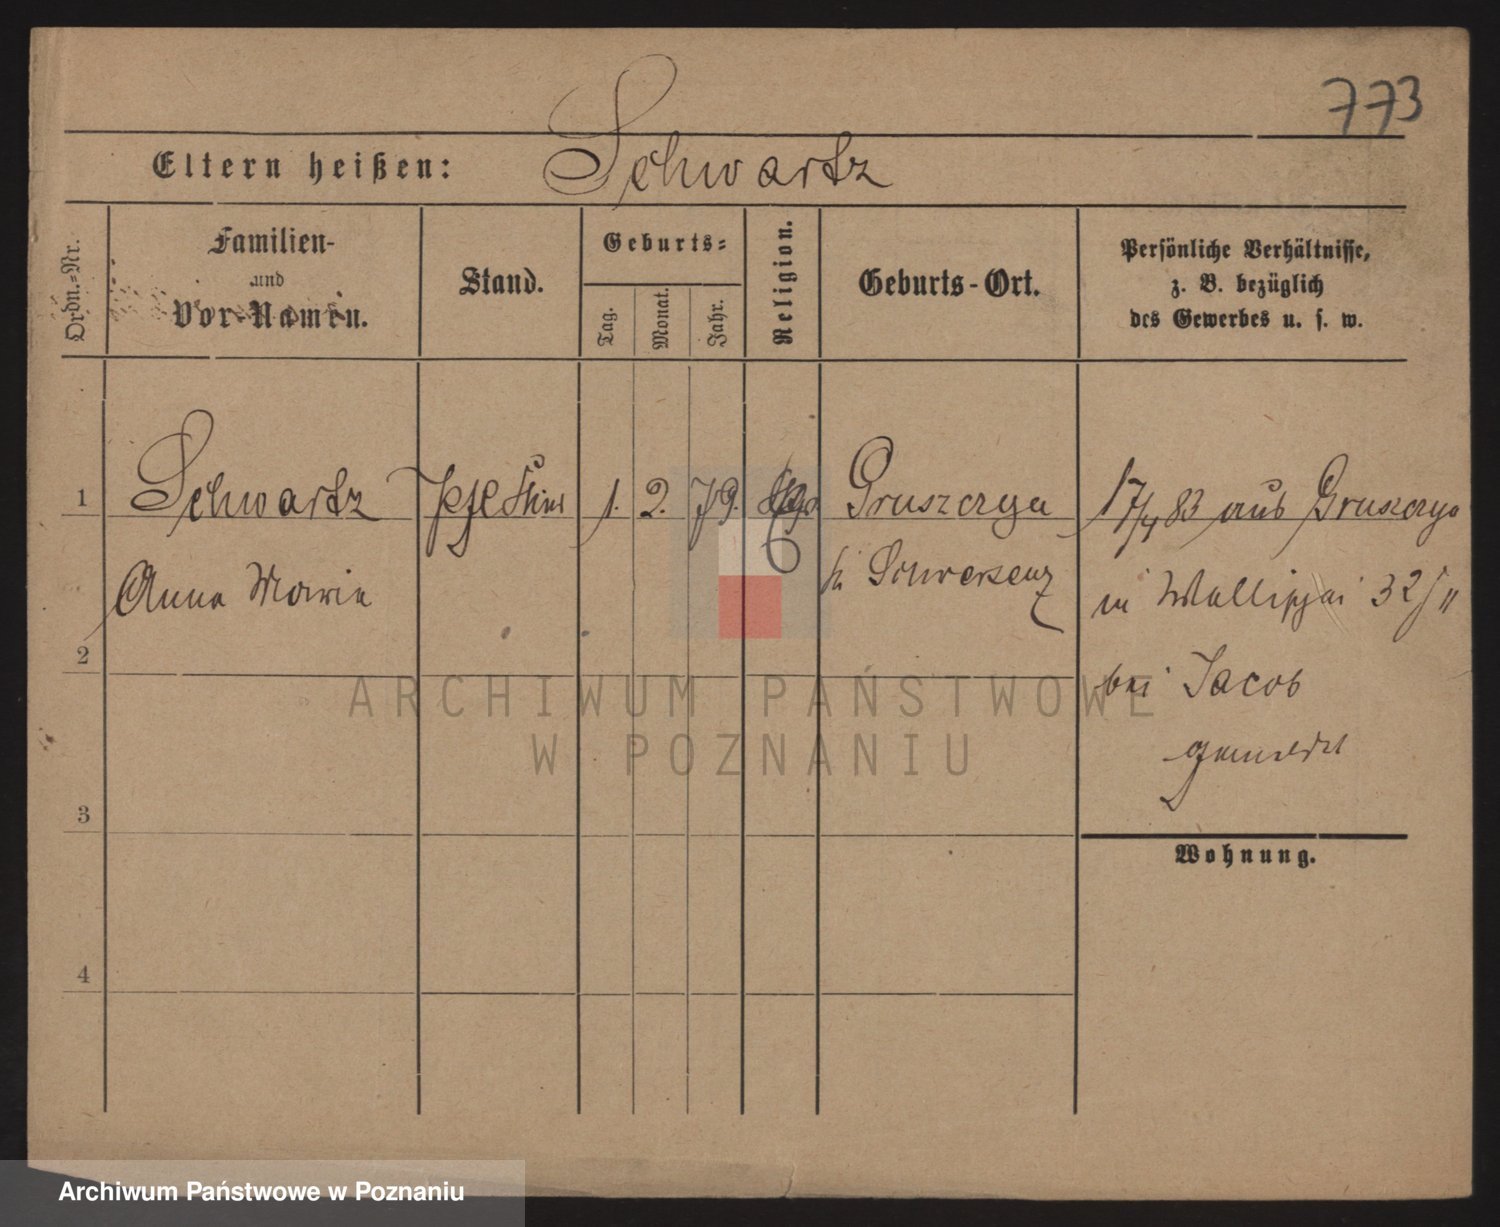 773
Eltern heißen: Schwartz
Ordn.-Nr.
Familien-
und
Vor-Namen.
Stand.
Geburts-
Tag.
Monat.
Jahr.
Religion.
Geburts-Ort.
Persönliche Verhältnisse,
z. B. bezüglich
des Gewerbes u. s. w.
1 Schwartz 1. 2. 79. Gruszczyn 17/4 83 aus Gruszczyn
Anna Maria b. Schwersenz in 32/
2
bei Jacob
gemeldet
3
Wohnung.
4
ARCHIWUM PAŃSTWOWE
W POZNANIU
Archiwum Państwowe w Poznaniu